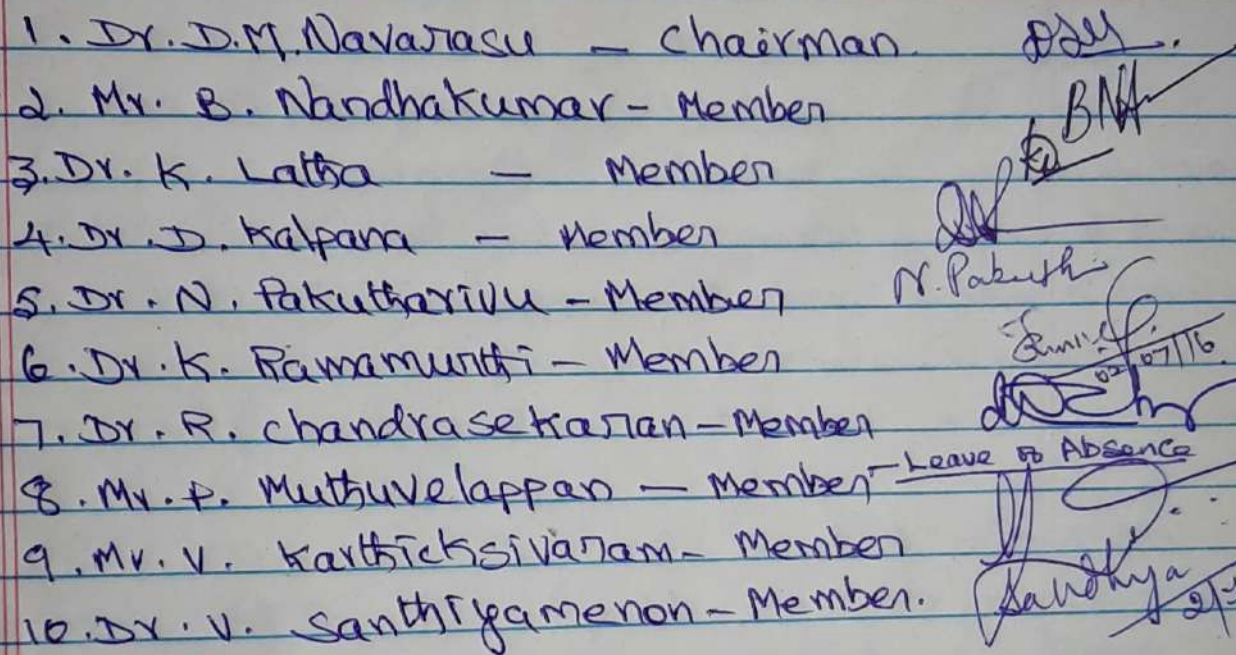 1. Dr. D.M. Navarasu - Chairman.
2. Mr. B. Nandhakumar - Member BNA
3. Dr. K. Latha - Member
4. Dr. D. Kalpana - Member
5. Dr. N. Pakutharivu - Member N. Pakuth
6. Dr. K. Ramamurthi - Member 02/07/16
7. Dr. R. Chandrasekaran - Member
8. Mr. P. Muthuvelappan - Member - Leave of Absence
9. Mr. V. Karthicksivaram - Member
10. Dr. V. Santhiyamenon - Member. Sandhya